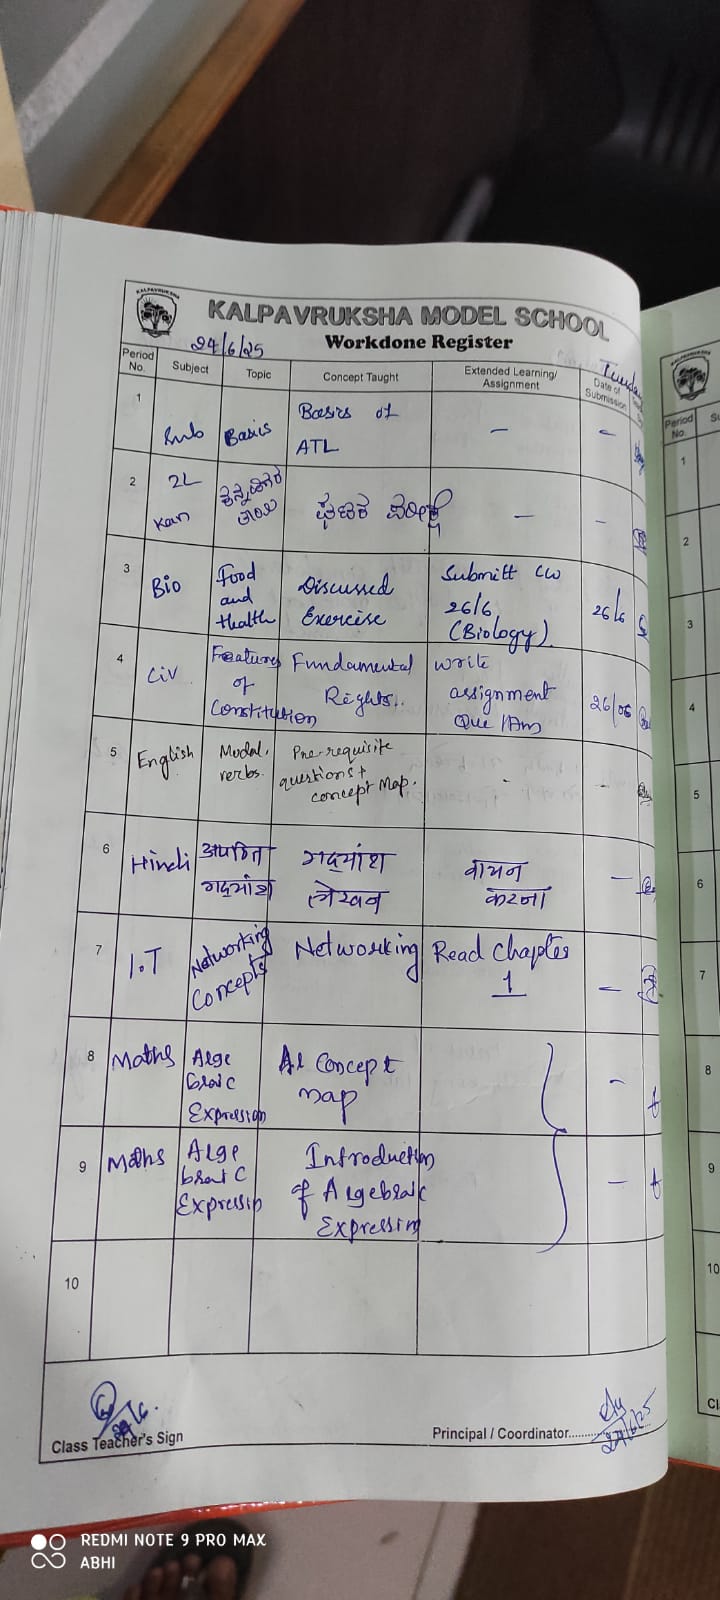 KALPAVRUKSHA MODEL SCHOOL
24/6/25 Workdone Register
Period No. Subject Topic Concept Taught Extended Learning/ Assignment Date of Submission
1 Basics Basics of ATL — –
2 2L Kan – –
3 Bio Food and Health Discussed Exercise Submitt CW 26/6 (Biology). 26/6
4 Civ Features of Constitution Fundamental Rights. write assignment Que/Ans 26/06
5 English Modal verbs. Pre-requisite questions + concept Map. - -
6 Hindi अपठित गद्यांश गद्यांश लेखन वाचन करना –
7 I.T Networking Concepts Networking Read Chapter 1 –
8 Maths Alge braic Expression Al Concept map –
9 Maths Alge braic Expressin Introduction of Algebraic Expressing –
10
Class Teacher's Sign
Principal / Coordinator..........
Period No.
1
2
3
4
5
6
7
8
9
10
REDMI NOTE 9 PRO MAX
ABHI